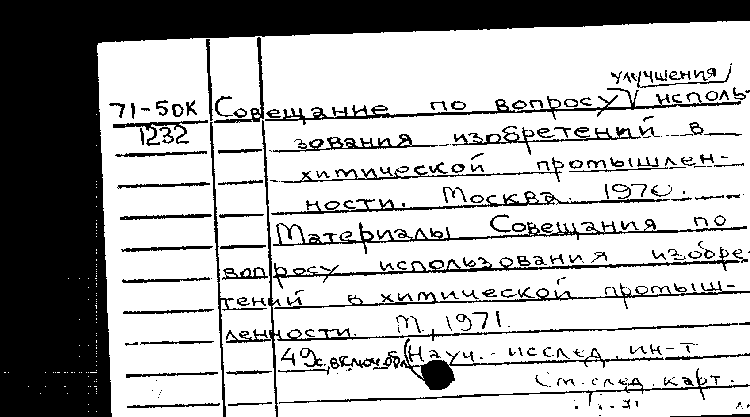 улучшения
71-5ОК Совещание по вопросу исполь-
1232 зования изобретений в
химической промышлен-
ности. Москва. 1970.
Материалы Совещания по
вопросу использования изобре-
тений в химической промыш-
ленности. М, 1971.
49с, включ. обл. (Науч.-исслед. ин-т
См. след. карт.